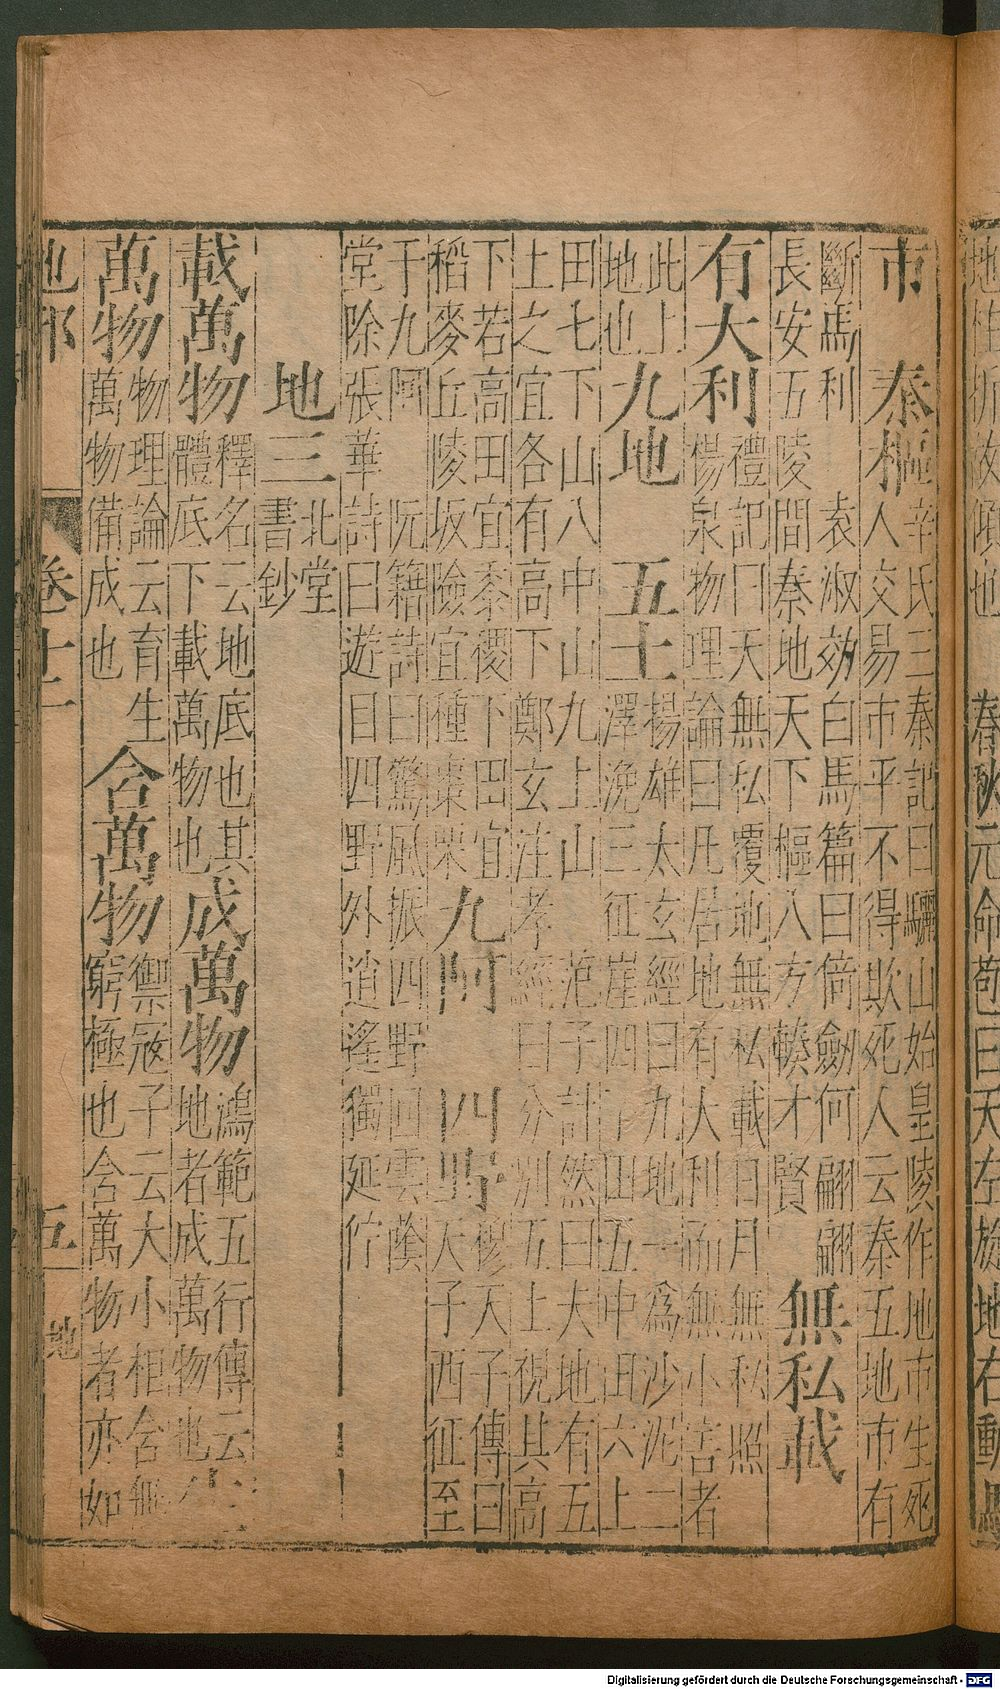 地性折故傾也 春秋元命苞曰天左旋地右動
市 秦樞 辛氏三秦記曰驪山始皇陵作地市生死
人交易市平不得欺死人云秦五地市有
斷馬利 袁淑効白馬篇曰倚劒何翩翩
長安五陵間秦地天下樞八方輳才賢 無私載
有大利 禮記曰天無私覆地無私載日月無私照
楊泉物理論曰凡居地有大利而無小害者
此上
地也 九地 五土 揚雄太玄經曰九地一爲沙泥二
澤浼三征崖四下田五中田六上
田七下山八中山九上山 范子計然曰夫地有五
土之宜各有高下 鄭玄注孝經曰分別五土視其高
下若高田宜黍稷下田宜
稻麥丘陵坂險宜種棗栗 九阿 四野 穆天子傳曰
天子西征至
于九阿 阮籍詩曰驚風振四野回雲蔭
堂除張華詩曰遊目四野外逍遙獨延佇
地三 北堂
書鈔
載萬物 釋名云地底也其
體底下載萬物也 成萬物 鴻範五行傳云
地者成萬物也 生
萬物 物理論云育生
萬物備成也 含萬物 禦寇子云大小相含無
窮極也含萬物者亦如
地部 卷十一 五 地
Digitalisierung gefördert durch die Deutsche Forschungsgemeinschaft - DFG